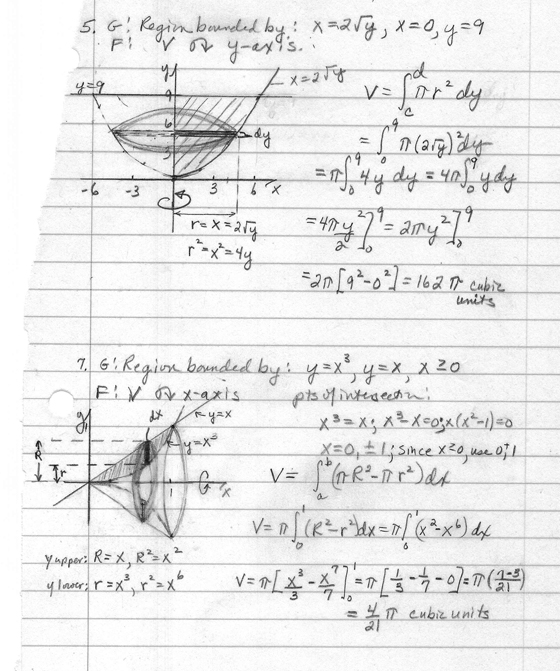 5. G: Region bounded by: x=2√y, x=0, y=9
F: V on y-axis.
y
x=2√y
y=9
9
6
3
dy
-6 -3 3 6 x
r=x=2√y
r²=x²=4y
V=∫_c^d πr² dy
=∫_0^9 π(2√y)² dy
=π∫_0^9 4y dy = 4π∫_0^9 y dy
=4πy²/2]_0^9 = 2πy²]_0^9
=2π[9²-0²]=162π cubic units
7. G: Region bounded by: y=x³, y=x, x≥0
F: V on x-axis
pts of intersection:
x³=x; x³-x=0; x(x²-1)=0
x=0, ±1; since x≥0, use 0,1
y
1
dx
y=x
y=x³
R
r
1
x
V=∫_a^b (πR²-πr²)dx
V=π∫_0^1 (R²-r²)dx=π∫_0^1 (x²-x⁶)dx
y upper: R=x, R²=x²
y lower: r=x³, r²=x⁶
V=π[x³/3-x⁷/7]_0^1=π[1/3-1/7-0]=π(7-3/21)
=4/21 π cubic units